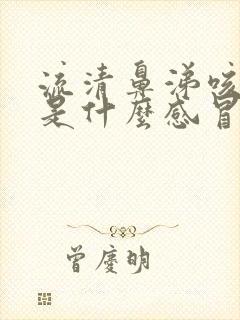 流清鼻涕咳
是什麼感冒
曾慶明